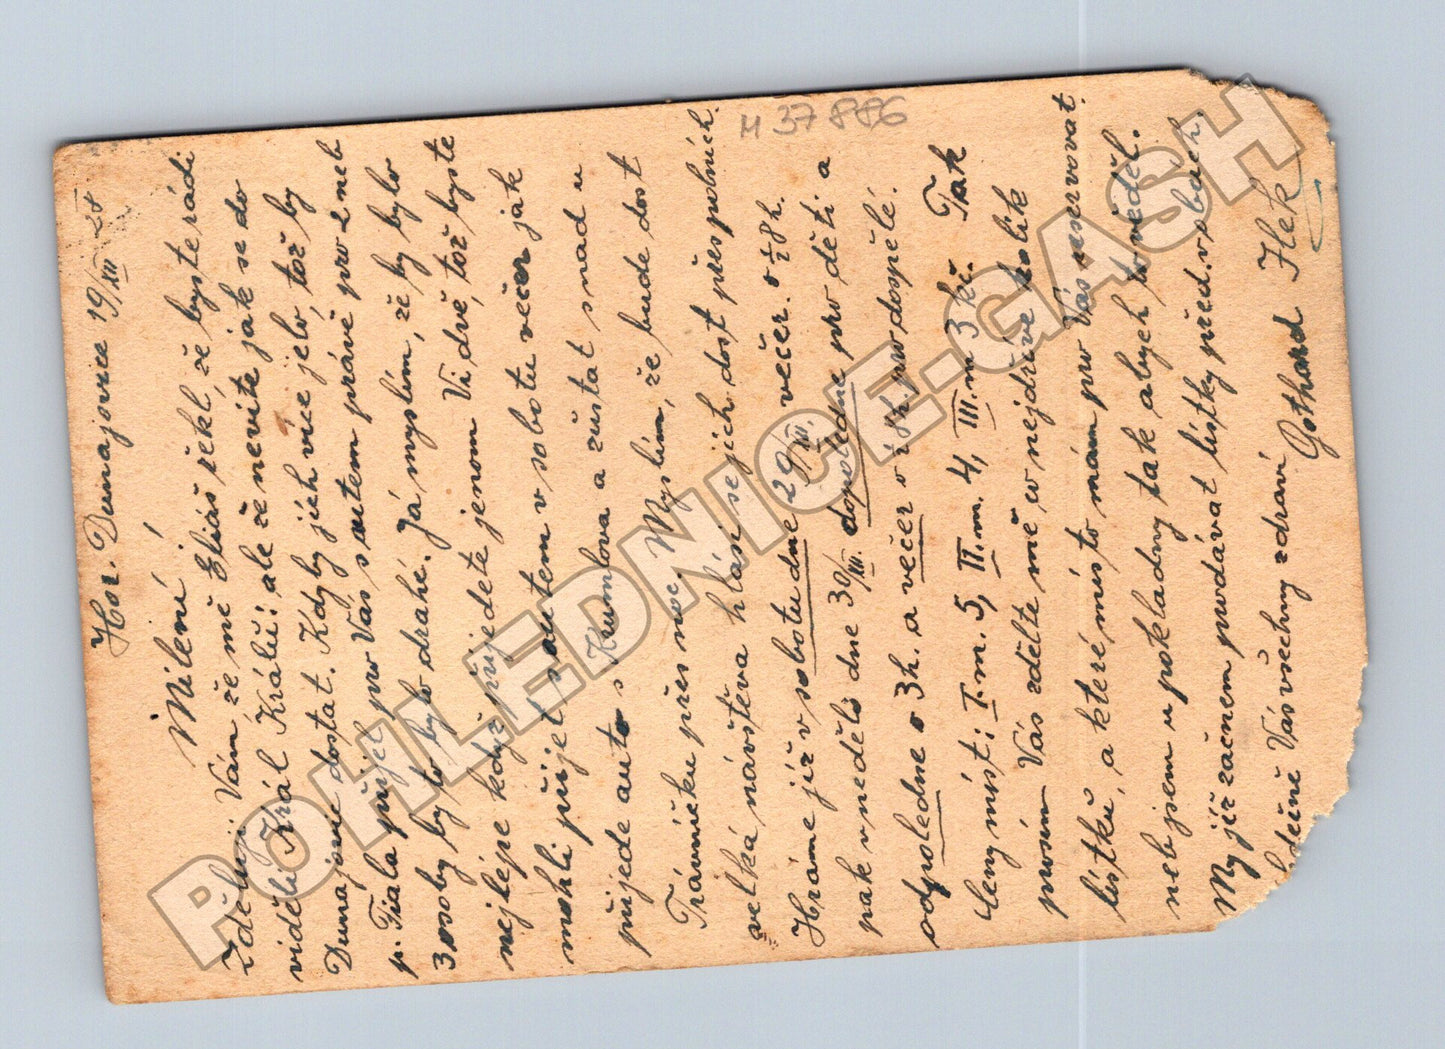 Hor. Dunajovice 19/XII 28
Milení!
Zděluji Vám že mě Eliáš řekl, že byste rádi
viděli Král Králů: ale že nevíte jak se do
Dunajovic dostat. Kdyby jich více jelo, tož by
p. Fiala přijel pro Vás s autem právě pro 2 neb
3 osoby by to bylo drahé. Já myslím, že by bylo
nejlépe když přijedete jenom Vi dvě, tož byste
mohli přijet s autem v sobotu večer jak
přijede auto s Krumlova a zůstat snad u
Trávníčku přes noc. Myslím, že bude dost
velká návštěva hlási se jich dost přespolních.
Hráme již v sobotu dne 29/XII. večer. o ½ 8 h.
pak v neděli dne 30/XII dopoledne pro děti a
odpoledne o 3 h. a večer o ½ 8 h. pro dospělé.
Ceny míst: I. m. 5, II. m. 4, III. m 3 kč. Tak
prosím Vás zdělte mě co nejdříve kolik
lístku, a které místo mám pro Vás reservovat.
neb jsem u pokladny tak abych to věděl.
My již začnem prodávat lístky před. v sbách.
Vás všechny zdraví
Gothard Ilek
M 37886
POHLEDNICE-GASH